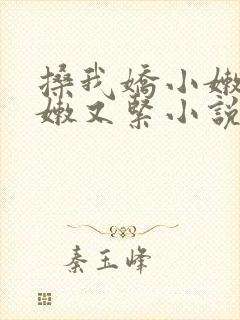 搡我嬌小嫩
嫩又緊小說
秦玉峰